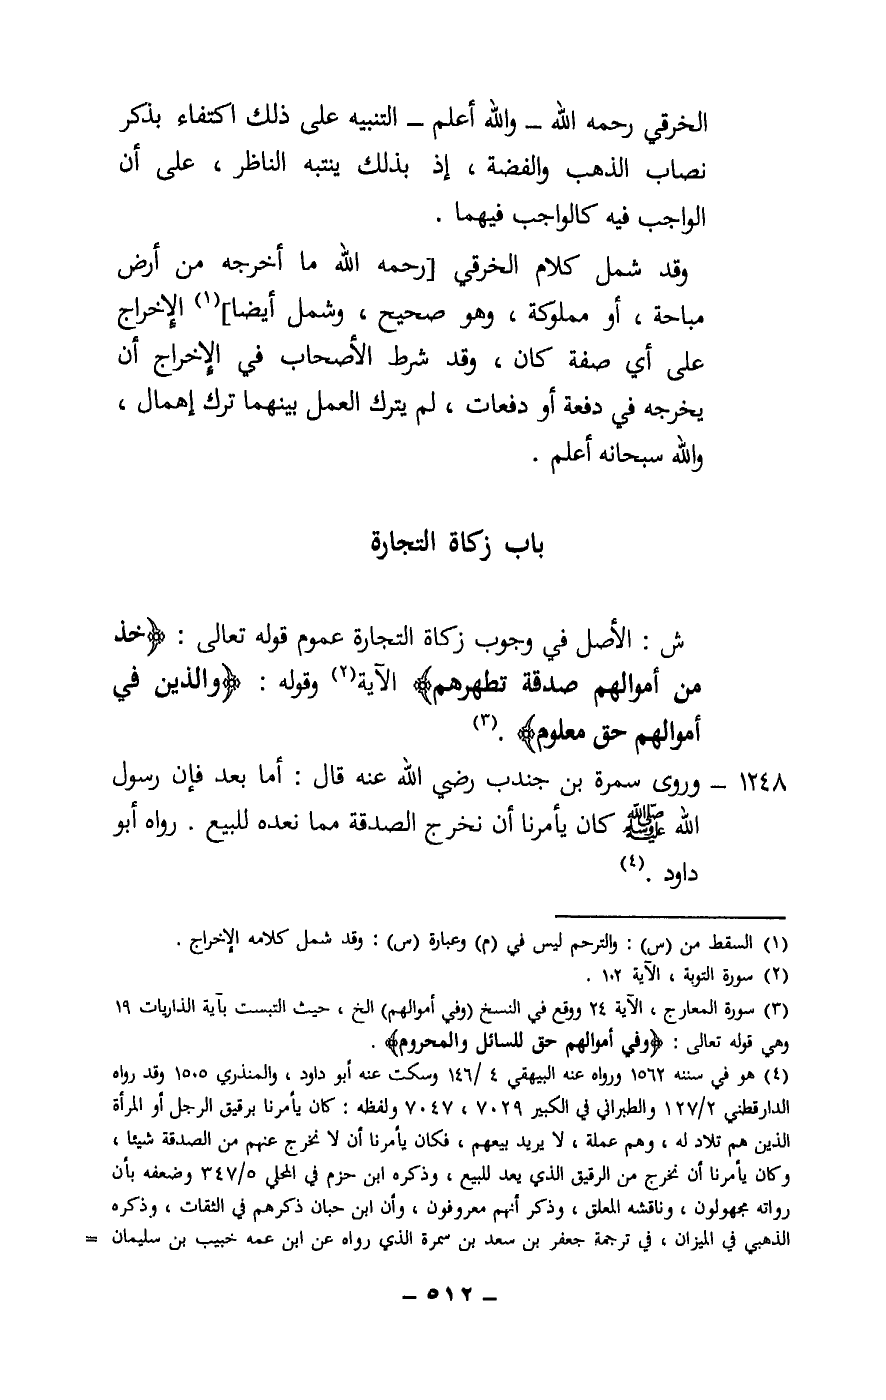 الخرقي رحمه الله ــ والله أعلم ــ التنبيه على ذلك اكتفاء بذكر
نصاب الذهب والفضة ، إذ بذلك ينتبه الناظر ، على أن
الواجب فيه كالواجب فيهما .
وقد شمل كلام الخرقي [رحمه الله ما أخرجه من أرض
مباحة ، أو مملوكة ، وهو صحيح ، وشمل أيضا](١) الإخراج
على أي صفة كان ، وقد شرط الأصحاب في الإخراج أن
يخرجه في دفعة أو دفعات ، لم يترك العمل بينهما ترك إهمال ،
والله سبحانه أعلم .
باب زكاة التجارة
ش : الأصل في وجوب زكاة التجارة عموم قوله تعالى : ﴿خذ
من أموالهم صدقة تطهرهم﴾ الآية(٢) وقوله : ﴿والذين في
أموالهم حق معلوم﴾ .(٣)
١٢٤٨ ــ وروى سمرة بن جندب رضي الله عنه قال : أما بعد فإن رسول
الله ﷺ كان يأمرنا أن نخرج الصدقة مما نعده للبيع . رواه أبو
داود .(٤)
(١) السقط من (س) : والترحم ليس في (م) وعبارة (س) : وقد شمل كلامه الإخراج .
(٢) سورة التوبة ، الآية ١٠٢ .
(٣) سورة المعارج ، الآية ٢٤ ووقع في النسخ (وفي أموالهم) الخ ، حيث التبست بآية الذاريات ١٩
وهي قوله تعالى : ﴿وفي أموالهم حق للسائل والمحروم﴾ .
(٤) هو في سننه ١٥٦٢ ورواه عنه البيهقي ٤ /١٤٦ وسكت عنه أبو داود ، والمنذري ١٥٠٥ وقد رواه
الدارقطني ١٢٧/٢ والطبراني في الكبير ٧٠٢٩ ، ٧٠٤٧ ولفظه : كان يأمرنا برقيق الرجل أو المرأة
الذين هم تلاد له ، وهم عملة ، لا يريد بيعهم ، فكان يأمرنا أن لا نخرج عنهم من الصدقة شيئا ،
وكان يأمرنا أن نخرج من الرقيق الذي يعد للبيع ، وذكره ابن حزم في المحلى ٣٤٧/٥ وضعفه بأن
رواته مجهولون ، وناقشه المعلق ، وذكر أنهم معروفون ، وأن ابن حبان ذكرهم في الثقات ، وذكره
الذهبي في الميزان ، في ترجمة جعفر بن سعد بن سمرة الذي رواه عن ابن عمه خبيب بن سليمان =
ــ ٥١٢ ــ